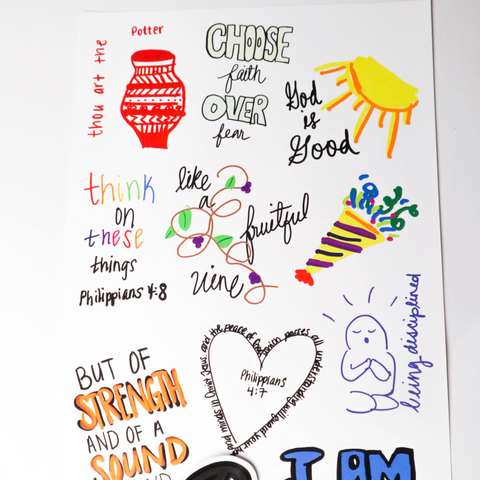 thou art the
Potter
CHOOSE
faith
OVER
fear
God
is
Good
think
on
these
things
Philippians 4:8
like
a
fruitful
vine
being disciplined
BUT OF
STRENGTH
AND OF A
SOUND
and the peace of God which passes all understanding will guard your
minds in Christ Jesus
Philippians
4:7
I AM